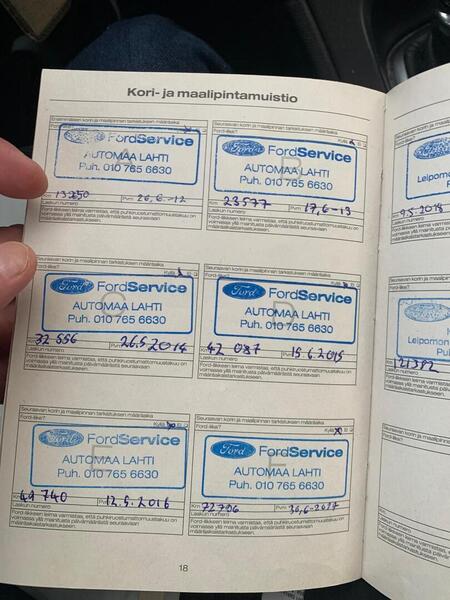 Kori- ja maalipintamuistio
Ensimmäisen korin ja maalipinnan tarkastuksen määräaika
Ford-liike?
Ford FordService
AUTOMAA LAHTI
Puh. 010 765 6630
Km 13250 Pvm 26,6-12
Laskun numero
Ford-liikkeen leima varmistaa, että puhkiruostumattomuustakuu on
voimassa yllä mainitusta päivämäärästä seuraavaan
määräaikaistarkastukseen.
Seuraavan korin ja maalipinnan tarkastuksen määräaika
Ford-liike? Kyllä
Ford FordService
AUTOMAA LAHTI
Puh. 010 765 6630
Km 23577 17,6-13
Laskun numero
Ford-liikkeen leima varmistaa, että puhkiruostumattomuustakuu on
voimassa yllä mainitusta päivämäärästä seuraavaan
määräaikaistarkastukseen.
Seuraavan korin ja maalipinnan tarkastuksen määräaika
Ford-liike? Kyllä
Ford FordService
AUTOMAA LAHTI
Puh. 010 765 6630
32 556 Pvm 26.5.2014
Laskun numero
Ford-liikkeen leima varmistaa, että puhkiruostumattomuustakuu on
voimassa yllä mainitusta päivämäärästä seuraavaan
määräaikaistarkastukseen.
Seuraavan korin ja maalipinnan tarkastuksen määräaika
Ford-liike?
Ford FordService
AUTOMAA LAHTI
Puh. 010 765 6630
42 087 15.6.2015
Laskun numero
Ford-liikkeen leima varmistaa, että puhkiruostumattomuustakuu on
voimassa yllä mainitusta päivämäärästä seuraavaan
määräaikaistarkastukseen.
Seuraavan korin ja maalipinnan tarkastuksen määräaika
Ford-liike? Kyllä
Ford FordService
AUTOMAA LAHTI
Puh. 010 765 6630
Km 49 740 Pvm 12.5.2016
Laskun numero
Ford-liikkeen leima varmistaa, että puhkiruostumattomuustakuu on
voimassa yllä mainitusta päivämäärästä seuraavaan
määräaikaistarkastukseen.
Seuraavan korin ja maalipinnan tarkastuksen määräaika
Ford-liike? Kyllä
Ford FordService
AUTOMAA LAHTI
Puh. 010 765 6630
Km 72706 Pvm
Laskun numero
Ford-liikkeen leima varmistaa, että puhkiruostumattomuustakuu on
voimassa yllä mainitusta päivämäärästä seuraavaan
määräaikaistarkastukseen.
18
9.5.2018
Laskun numero
121392
Laskun numero